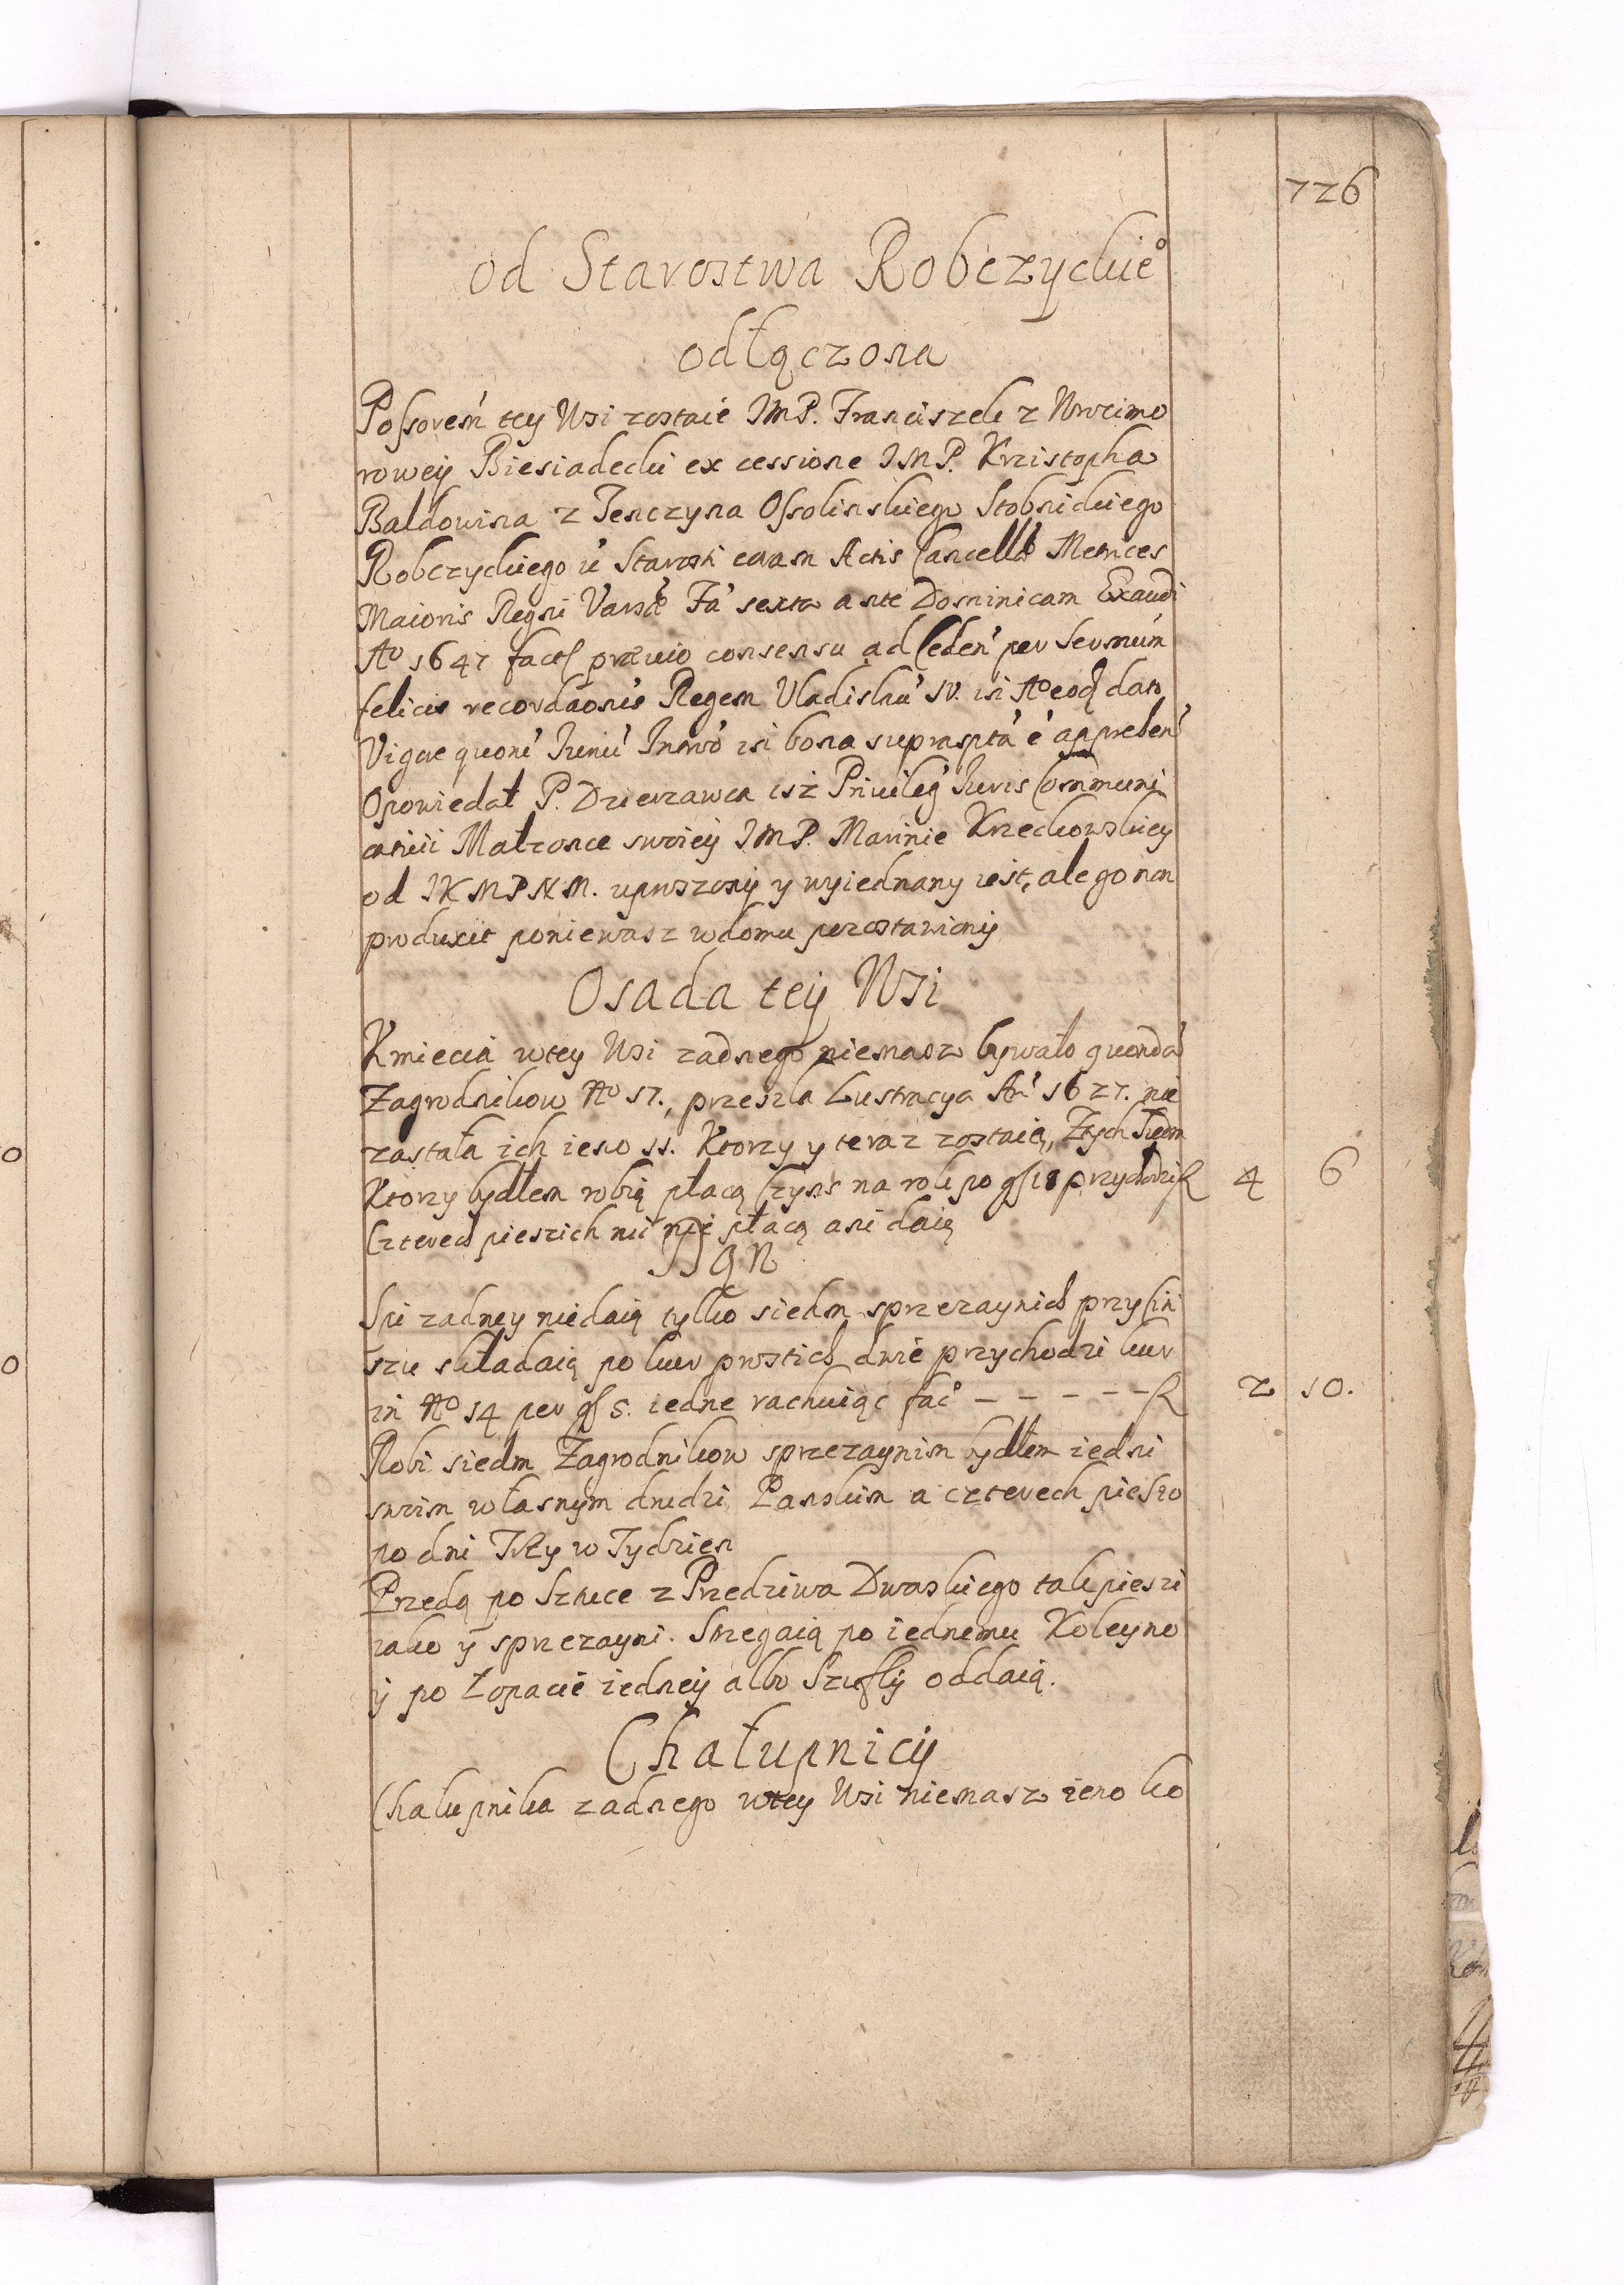 726
od Starostwa Robczyckie°
odłączona
Possoreḿ tey Wsi zostaie JMP. Franciszek z Wrocimo
rowey Biesiadecki ex cessione JMP. Krzistopha
Baldowina z Tenczyna Ossolinskiego Stobnickiego
Robczyckiego &c Starosti coram Actis Cancell Metrices
Maioris Regni Vars Fa' sexta ante Dominicam Exaudi
A° 1647 fact præuio consensu ad Ceden' per Sermum
felicis recordaonis Regem Vladislau' IV. in A° eod dato
Vigore quoru' Juriu' in bona suprascpta' e' apprehen'
Opowiedał P. Dzierzawca isz Priuileg' Juris Commmuni
catiui Małzonce swoiey JMP. Marinie Krzeckowskiey
od JKMPNM. uproszony y wyiednany iest, ale go non
produxit poniewasz w domu pozostawiony
Osada tey Wsi
Kmiecia wtey Wsi zadnego niemasz bywało quonda'
Zagrodnikow N° 17., przeszla Lustracya An' 1627. nie
zastała ich ieno 11. Ktorzy y teraz zostaią, Ztych Siedm
Ktorzy bydłem robią płacą Czyns na rok po g 18 przychodzi f 4 6
Czterech pieszich nic nie płacą ani daią
Sipi zadney niedaią tylko siedm sprzezaynich przy Czin
szu składaią po kur prostich dwie przychodzi kur
in N° 14 per g 5. iedne rachuiąc fac° - - - - - f 2 10.
Robi siedm Zagrodnikow sprzezaynim bydłem iedni
swoim własnym drudzi Panskim a czterech pieszo
po dni Trzy w Tydzien
Przedą po Sztuce z Przedziwa Dworskiego tak pieszi
iako y sprzezayni. Strzegaią po iednemu Koleyno
y po Łopacie iedney albo Szufly oddaią.
Chałupnicy
Chałupnika zadnego wtey Wsi niemasz ieno ko